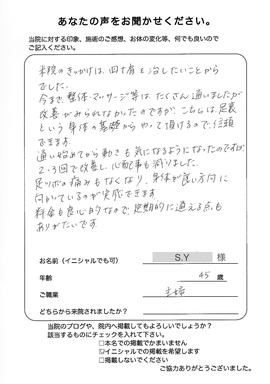 あなたの声をお聞かせください。
当院に対する印象、施術のご感想、お体の変化等、何でも良いので
ご記入ください。
来院のきっかけは、四十肩を治したいことから
でした。
今まで、整体・マッサージ等は、たくさん通いましたが
改善がみられなかったのですが、こちらは、足裏
という身体の基礎からやって頂けるので、信頼
できます。
通い始めてから動きも気になるようになったのですが
2-3回で改善し、心配事も減りました。
足ツボの痛みもなくなり、身体が良い方向に
向かっているのが実感できます
料金も良心的なので、定期的に通える点も
ありがたいです。
お名前(イニシャルでも可) S.Y 様
年齢 45 歳
ご職業 主婦
どちらから来院されましたか?
当院のブログや、院内へ掲載してもよろしいでしょうか?
該当するものにチェックを入れて下さい
□本名での掲載でかまいません
☑イニシャルでの掲載を希望します
□掲載しないでください
ご協力ありがとうございました。